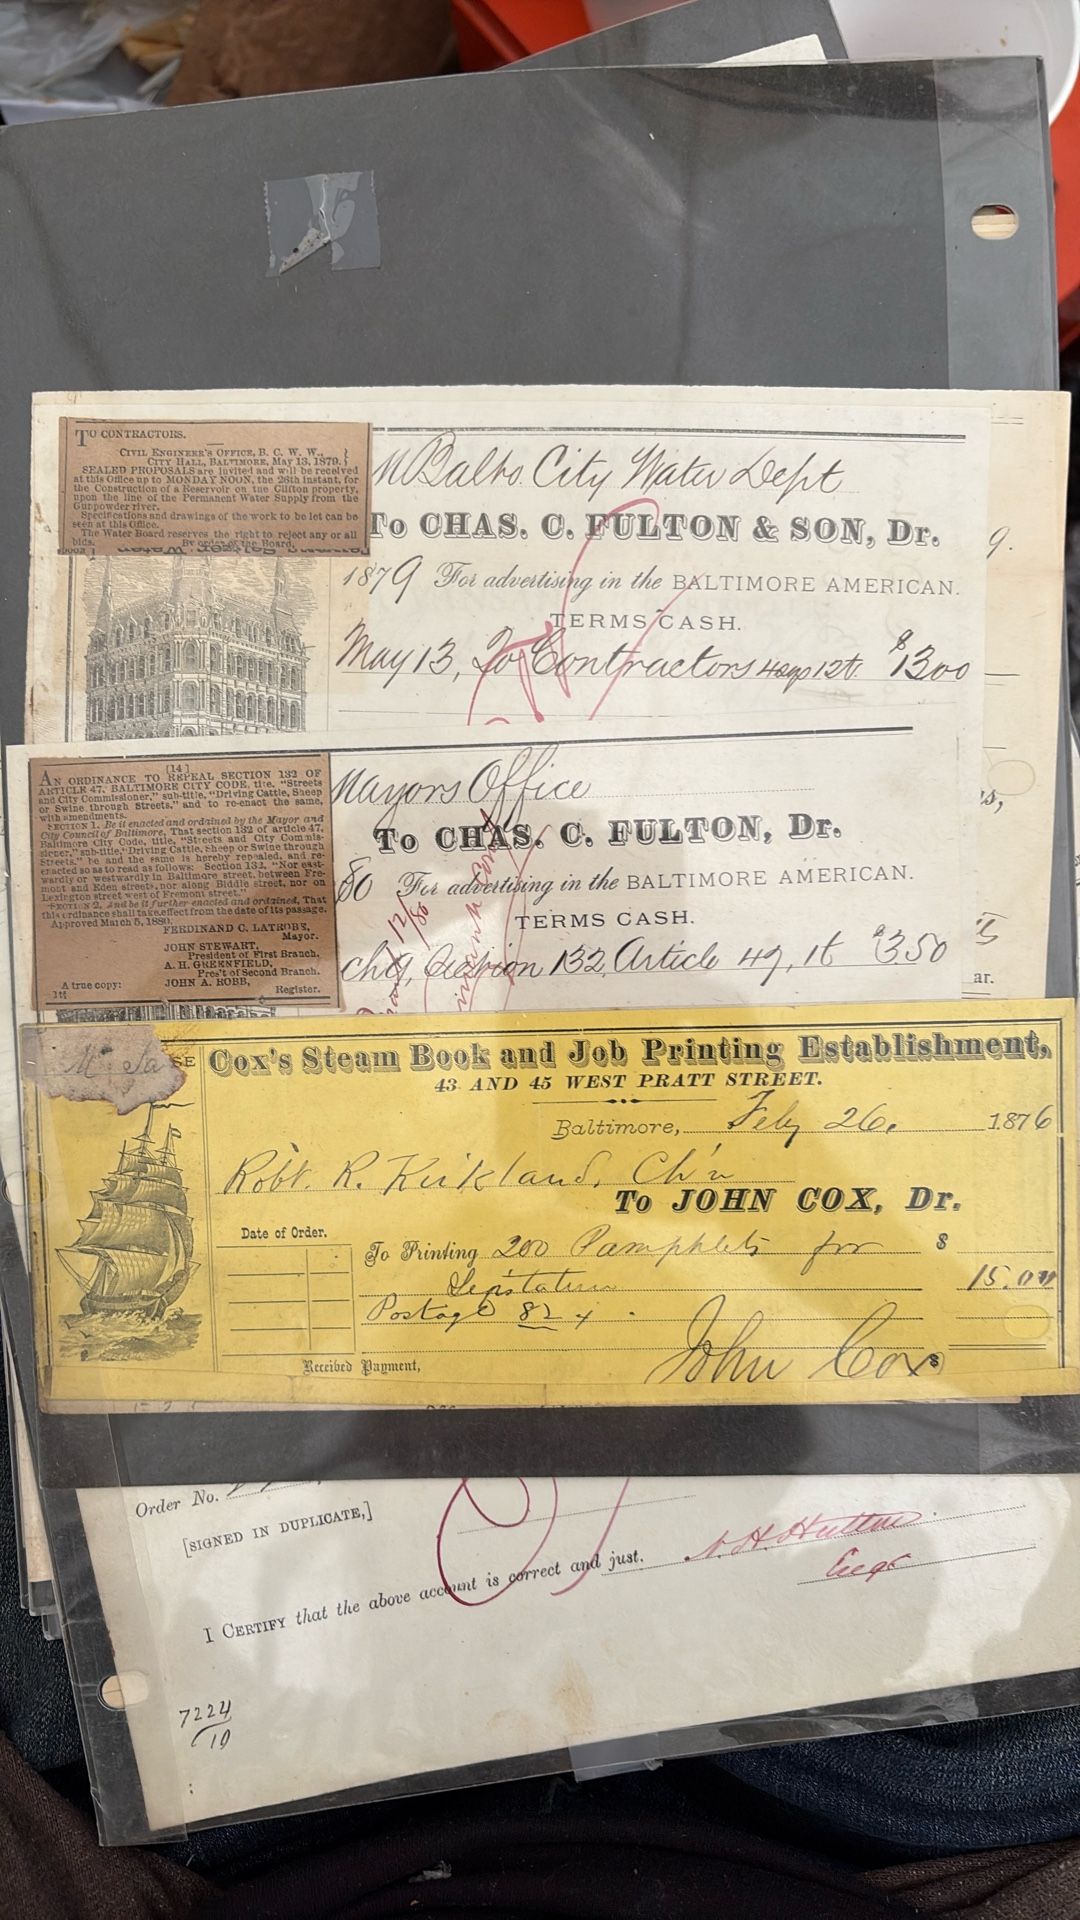 TO CONTRACTORS.
CIVIL ENGINEER'S OFFICE, B. C. W. W.,
CITY HALL, BALTIMORE, May 13, 1879.
SEALED PROPOSALS are invited and will be received
at this Office up to MONDAY NOON, the 26th instant, for
the Construction of a Reservoir on the Clifton property,
upon the line of the Permanent Water Supply from the
Gunpowder river.
Specifications and drawings of the work to be let can be
seen at this Office.
The Water Board reserves the right to reject any or all
bids. By order of the Board.
M Balto. City Water Dept
To CHAS. C. FULTON & SON, Dr.
9.
1879 For advertising in the BALTIMORE AMERICAN.
TERMS CASH.
May 13, To Contractors 12t. $1300
[14]
AN ORDINANCE TO REPEAL SECTION 132 OF
ARTICLE 47, BALTIMORE CITY CODE, title, "Streets
and City Commissioner," sub-title, "Driving Cattle, Sheep
or Swine through Streets," and to re-enact the same,
with amendments.
SECTION 1. Be it enacted and ordained by the Mayor and
City Council of Baltimore, That section 132 of article 47,
Baltimore City Code, title, "Streets and City Commis-
sioner," sub-title, "Driving Cattle, Sheep or Swine through
Streets," be and the same is hereby repealed, and re-
enacted so as to read as follows: Section 132, "Nor east-
wardly or westwardly in Baltimore street, between Fre-
mont and Eden streets, nor along Biddle street, nor on
Lexington street west of Fremont street."
SECTION 2. And be it further enacted and ordained, That
this ordinance shall take effect from the date of its passage.
Approved March 5, 1880.
FERDINAND C. LATROBE,
Mayor.
JOHN STEWART,
President of First Branch.
A. H. GREENFIELD,
Pres't of Second Branch.
A true copy: JOHN A. ROBB,
1tt Register.
Mayors Office
To CHAS. C. FULTON, Dr.
80 For advertising in the BALTIMORE AMERICAN.
TERMS CASH.
12/80
132, Article 47, 1t $350
ar.
SE
Cox's Steam Book and Job Printing Establishment,
43 AND 45 WEST PRATT STREET.
Baltimore, Feby 26, 1876
Robt. R. Kirkland, Ch'n
To JOHN COX, Dr.
Date of Order.
To Printing 200 Pamphlets for $
Legislature 15.00
Postage 82
Received Payment, John Cox
Order No.
[SIGNED IN DUPLICATE,]
I CERTIFY that the above account is correct and just. N. H. Hutton
Engr
7224
10